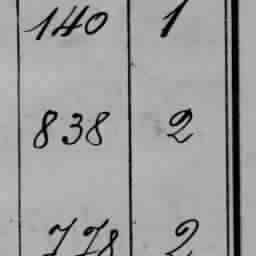 140 1
838 2
778 2